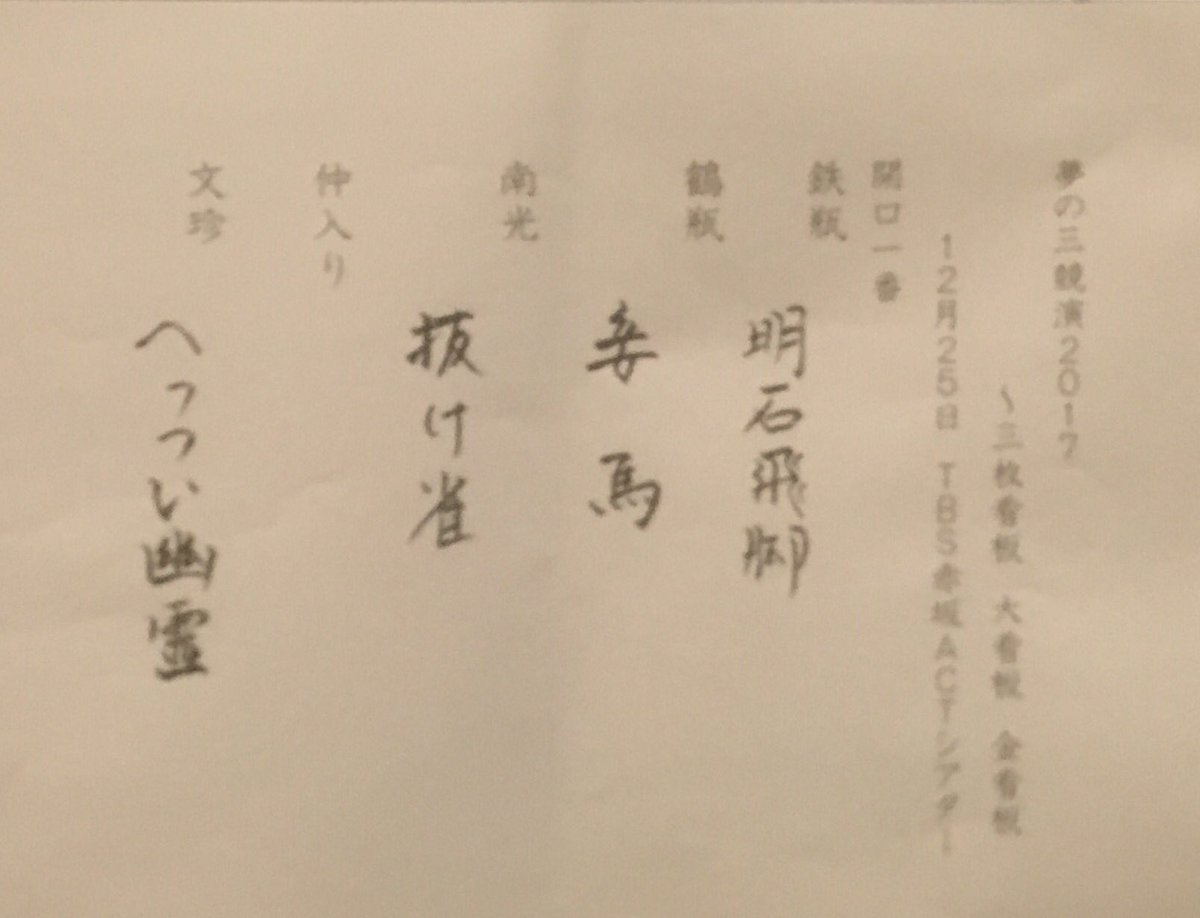 夢の三競演2017
～三枚看板 大看板 金看板
12月25日 TBS赤坂ACTシアター
開口一番
鉄瓶 明石飛脚
鶴瓶 妾馬
南光 抜け雀
仲入り
文珍 へっつい幽霊